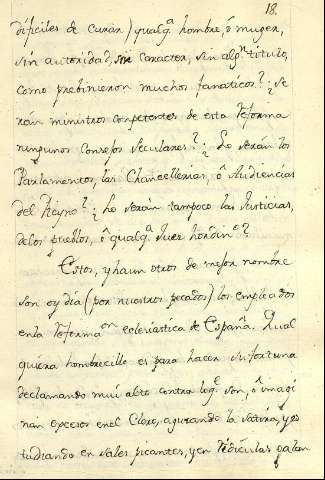 18.
dificiles de curar) qualq.a hombre, ô muger,
sin autoridad, sin caracter, sin alg.n titulo,
como predixieron muchos fanaticos? ¿Se
rán ministros competentes de esta Reforma
ningunos Consejos seculares? ¿Lo serán los
Parlamentos, las Chancellerias, ô Audiencias
del Reyno? ¿Lo serán tampoco las Justicias,
delos pueblos, ô qualq.a Juez hordin.o?
Estos, y haun otros de mejor nombre
son oy dia (por nuestros pecados) los empleados
enla Reforma.on eclesiastica de España. Qual
quiera hombrecillo es para hacer su fortuna
declamando mui alto contra loq.e son, ô imagi
nan excesos enel Clero, aguzando la satira, y es
tudiando en sales picantes, y en ridiculas galan